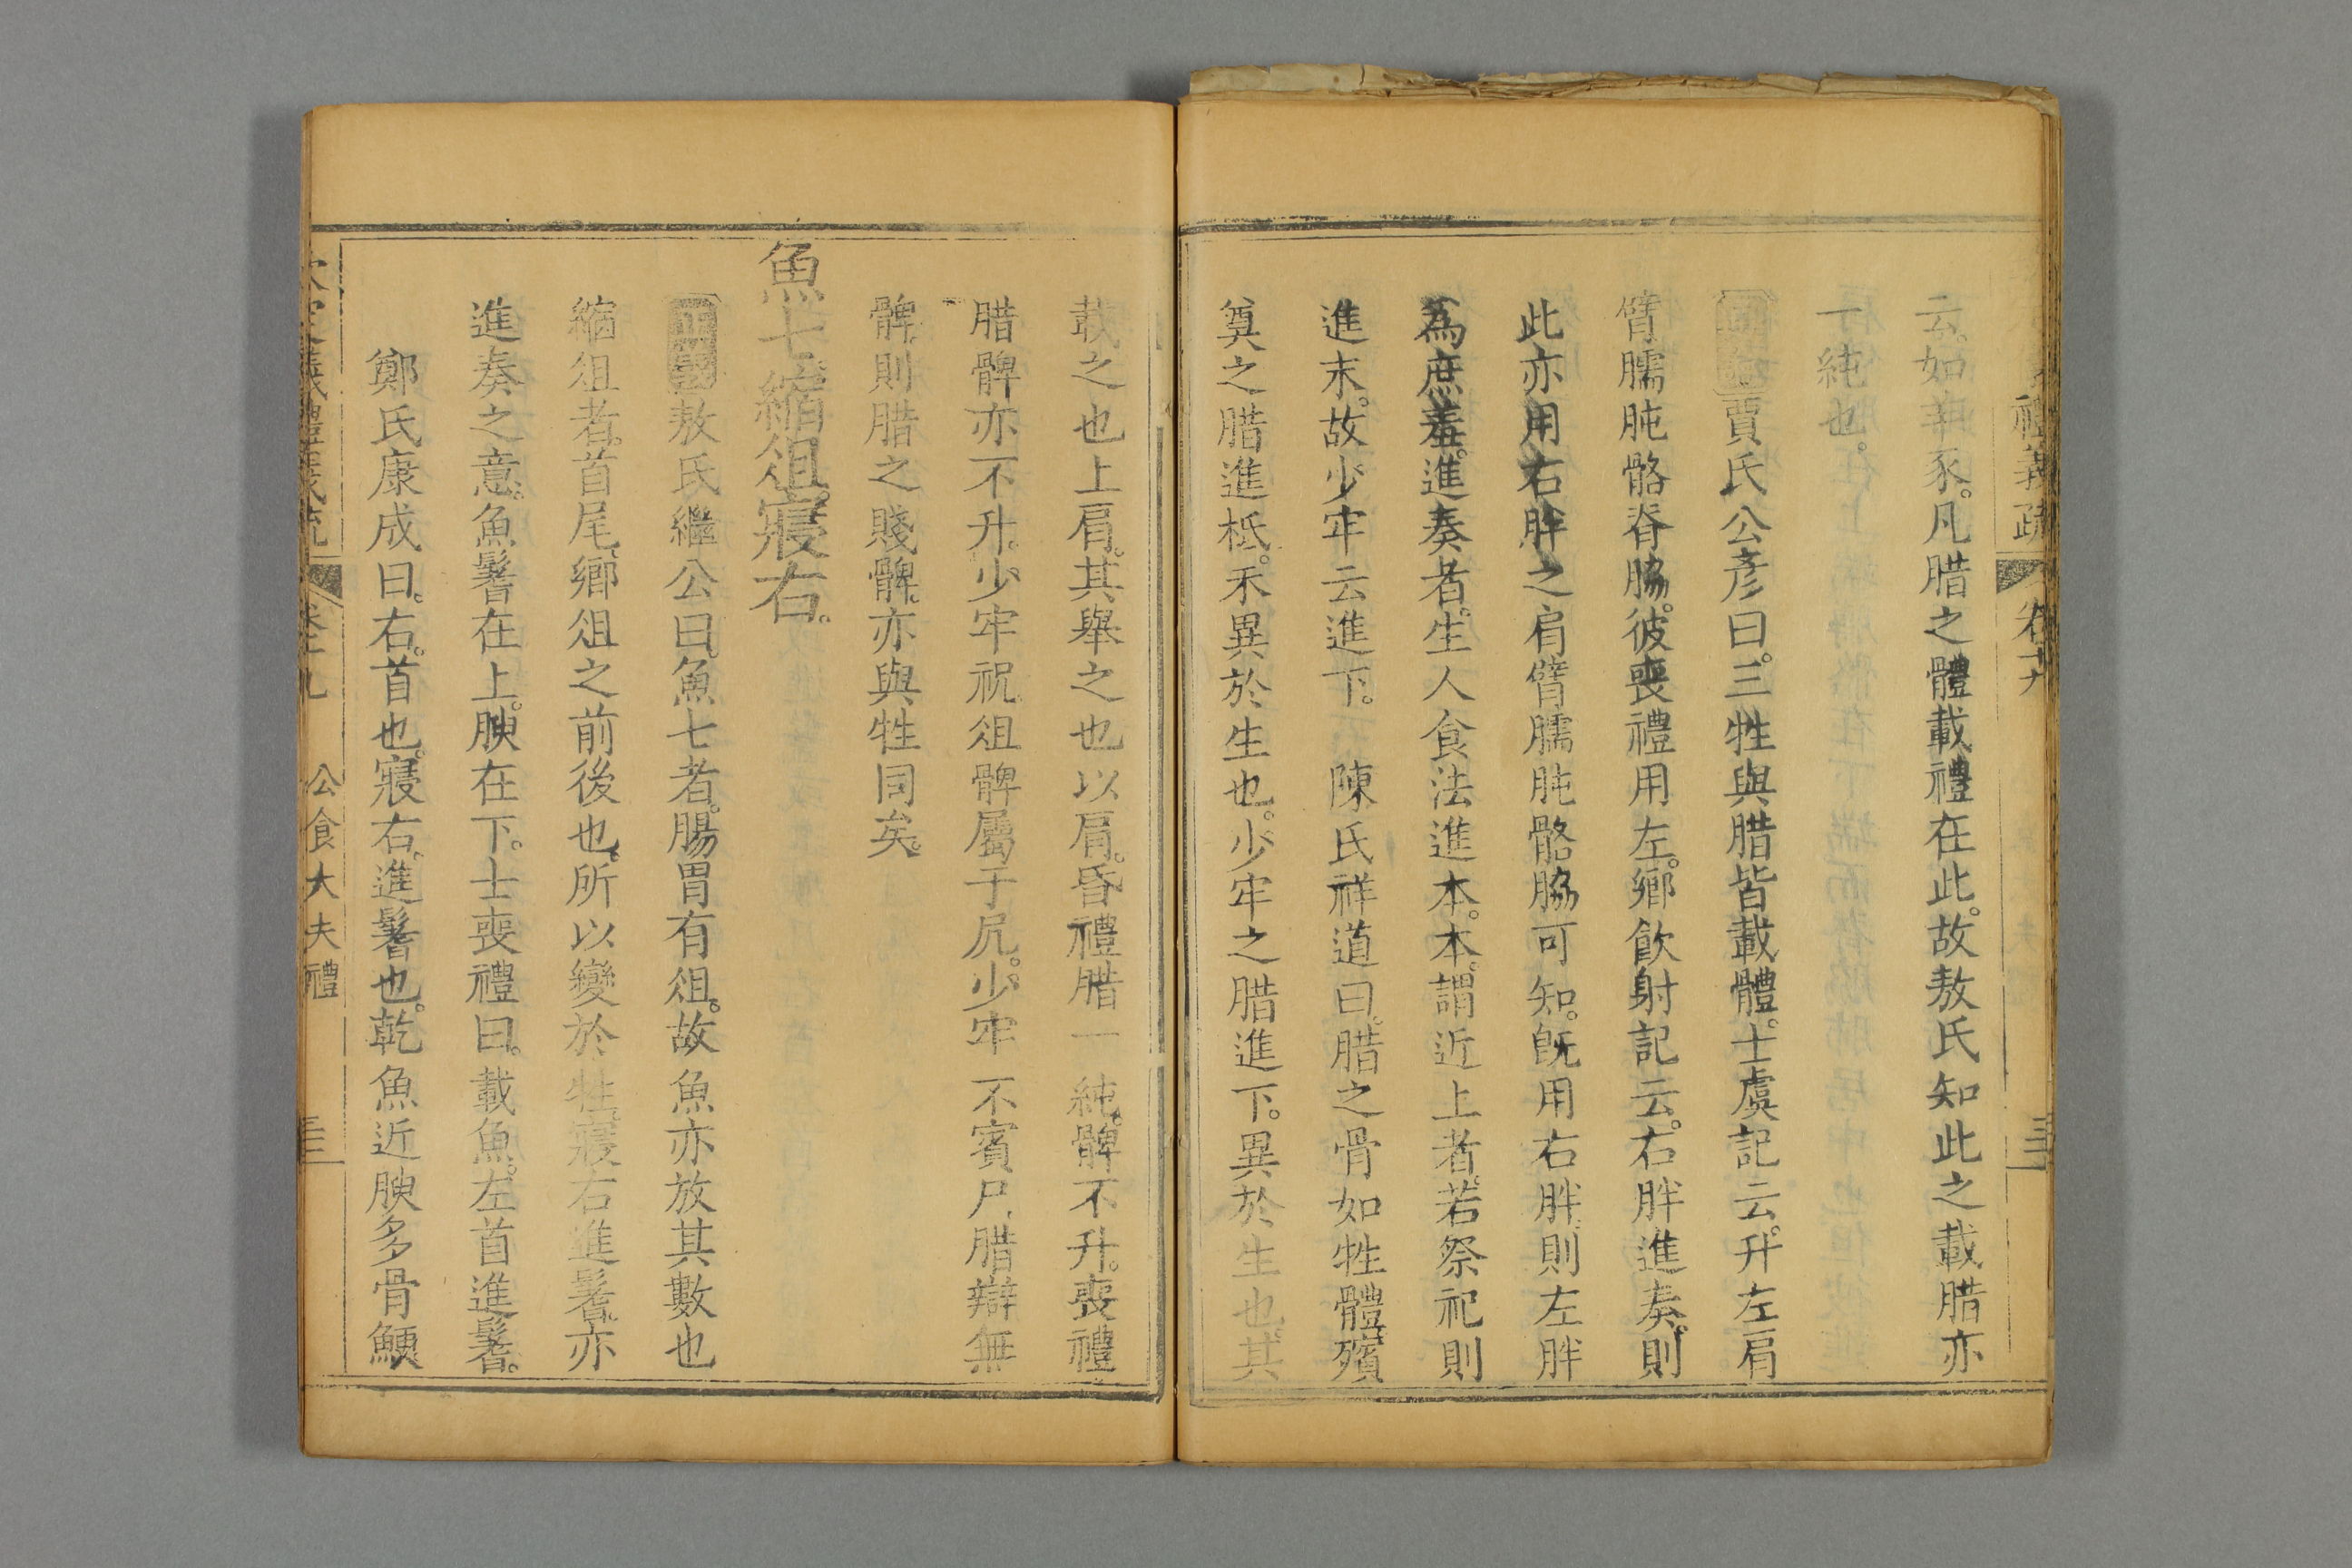 禮義疏 卷十九
云如羊豕。凡腊之體載禮在此。故敖氏知此之載腊亦
一純也。
賈氏公彥曰。三牲與腊皆載體。士虞記云。升左肩
臂臑肫骼脊脇。彼喪禮用左。鄉飲射記云。右胖進奏。則
此亦用右胖之肩臂臑肫骼脇可知。旣用右胖。則左胖
為庶羞。進奏者。生人食法進本。本謂近上者。若祭祀則
進末。故少牢云進下。 陳氏祥道曰。腊之骨如牲體殯
奠之腊進柢。不異於生也。少牢之腊進下。異於生也。其
載之也上肩。其舉之也以肩。昏禮腊一純。髀不升。喪禮
腊髀亦不升。少牢祝俎髀屬于尻。少牢不賓尸腊辯無
髀。則腊之賤髀。亦與牲同矣。
魚七。縮俎。寢右。
正義敖氏繼公曰。魚七者。腸胃有俎。故魚亦放其數也
縮俎者。首尾鄉俎之前後也。所以變於牲。寢右進鬐。亦
進奏之意。魚鬐在上。腴在下。士喪禮曰。載魚。左首進鬐。
鄭氏康成曰。右。首也。寢右。進鬐也。乾魚近腴多骨鯁
儀禮義疏 卷十九 公食大夫禮